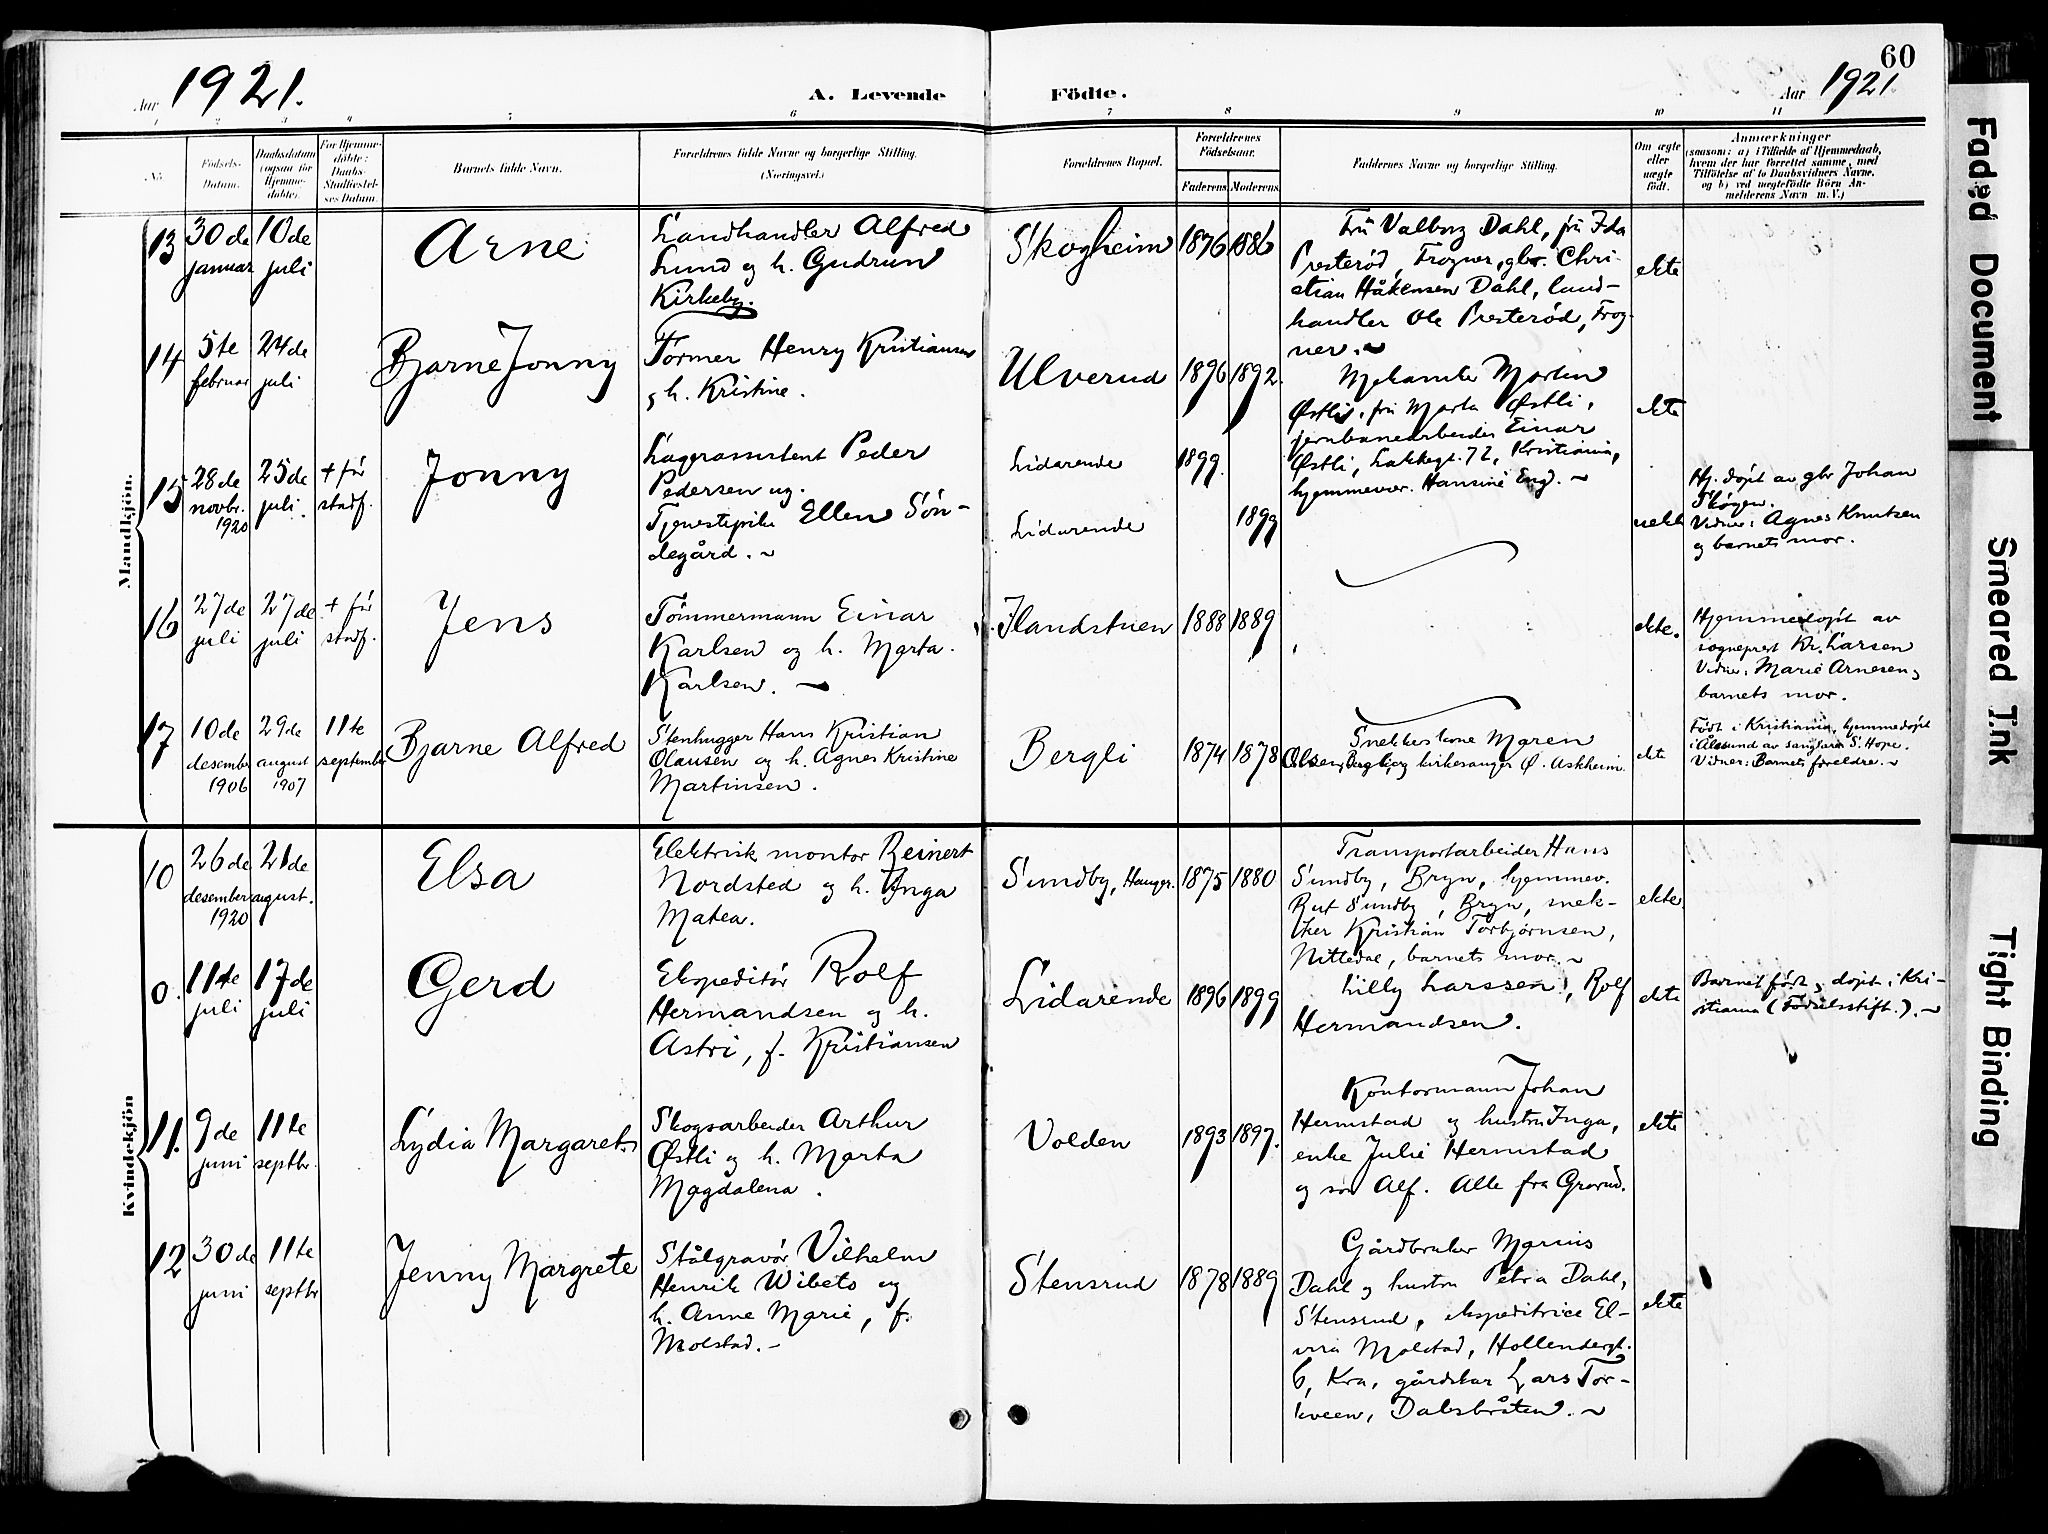 60
Aar 1921.
A. Levende Födte.
Aar 1921.
1 2 3 4 5 6 7 8 9 10 11
No.
Födsels-
Datum.
Daabsdatum
(ogsaa for
Hjemme-
döbte).
For Hjemme-
döbte:
Daabs-
Stadfæstel-
ses Datum.
Barnets fulde Navn.
Forældrenes fulde Navne og borgerlige Stilling.
(Næringsvei.)
Forældrenes Bopæl.
Forældrenes
Födselsaar.
Faderens Moderens
Faddernes Navne og borgerlige Stilling.
Om ægte
eller
uægte
födt.
Anmærkninger
(saasom: a) i Tilfælde af Hjemmedaab,
hvem der har forrettet samme, med
Tilföielse af to Daabsvidners Navne,
og b) ved uægtefödte Börn An-
melderens Navn m. V.)
Mandkjön.
13
30 de
januar
10 de
juli
Arne
Landhandler Alfred
Lund og h. Gudrun
Kirkeby.
Skogheim
1876 1886
Fru Valborg Dahl, fru Ida
Presterød, Frogner, gbr. Chri-
stian Håkensen Dahl, land-
handler Ole Presterød, Frog-
ner.
ekte
14
5te
februar
24de
juli
Bjarne Jonny
Former Henry Kristiansen
og h. Kristine.
Ulverud
1896 1892.
Mekaniker Morten
Østli, fru Marta Østli,
jernbanearbeider Einar
Østli, Lakkegt. 72, Kristiania,
hjemmevær. Hansine Eng.
ekte
15
28 de
novbr.
1920
25 de
juli.
+ før
stadf.
Jonny
Lagerassistent Peder
Pedersen og.
Tjenestepike Ellen Søn-
degård.
Lidarende
1899.
Lidarende
1899
uekte
Hj. døpt av gbr Johan
Skøyen.
Vidner: Agnes Knutsen
og barnets mor.
16
27 de
juli
27 de
juli
+ før
stadf.
Jens
Tømmermann Einar
Karlsen og h. Marta
Karlsen.
Ilandstuen
1888 1889
ekte.
Hjemmedøpt av
sogneprest Kr. Larsen
Vidner: Marie Arnesen,
barnets mor.
17
10 de
desember
1906
29 de
august
1907
11te
september
Bjarne Alfred
Stenhugger Hans Kristian
Olausen og h. Agnes Kristine
Martinsen.
Bergli
1874 1878
Snekkerkone Maren
Olsen, Bergli, og kirkesanger Ø. Askheim.
ekte
Født i Kristiania, hjemmedøpt
i Ålesund av sanglærer S. Hope.
Vidner: Barnets foreldre.
Kvindekjön
10
26 de
desember
1920
21 de
august.
Elsa
Elektrisk montør Reinert
Nordsted og h. Inga
Matea.
Sundby, Hauger.
1875 1880
Transportarbeider Hans
Sundby, Bryn, hjemmev.
Rut Sundby, Bryn, snek-
ker Kristian Torbjørnsen,
Nittedal, barnets mor.
ekte
0.
11te
juli
17 de
juli
Gerd
Ekspeditør Rolf
Hermandsen og h.
Astri, f. Kristiansen
Lidarende
1896 1899
Lilly Larssen, Rolf
Hermandsen.
ekte
Barnet født og døpt i Kri-
stiania (Fødselsstift.).
11.
9de
juni
11te
septbr.
Lydia Margarete
Skogsarbeider Arthur
Østli og h. Marta
Magdalena.
Volden
1893 1897.
Kontormann Johan
Hermstad og hustru Inga,
enke Julie Hermstad
og søn Alf. Alle fra Grorud.
ekte
12
30 de
juni
11te
septbr
Jenny Margrete
Stålgravør Vilhelm
Henrik Wibeto og
h. Anne Marie, f.
Molstad.
Stensrud
1878 1889
Gårdbruker Marius
Dahl og hustru Petra Dahl,
Stensrud, ekspeditrice El-
vira Molstad, Hollendergt.
6, Kra, gårdskar Lars Tor-
kveen, Dalsbråten.
ekte
Faded Document
Smeared Ink
Tight Binding